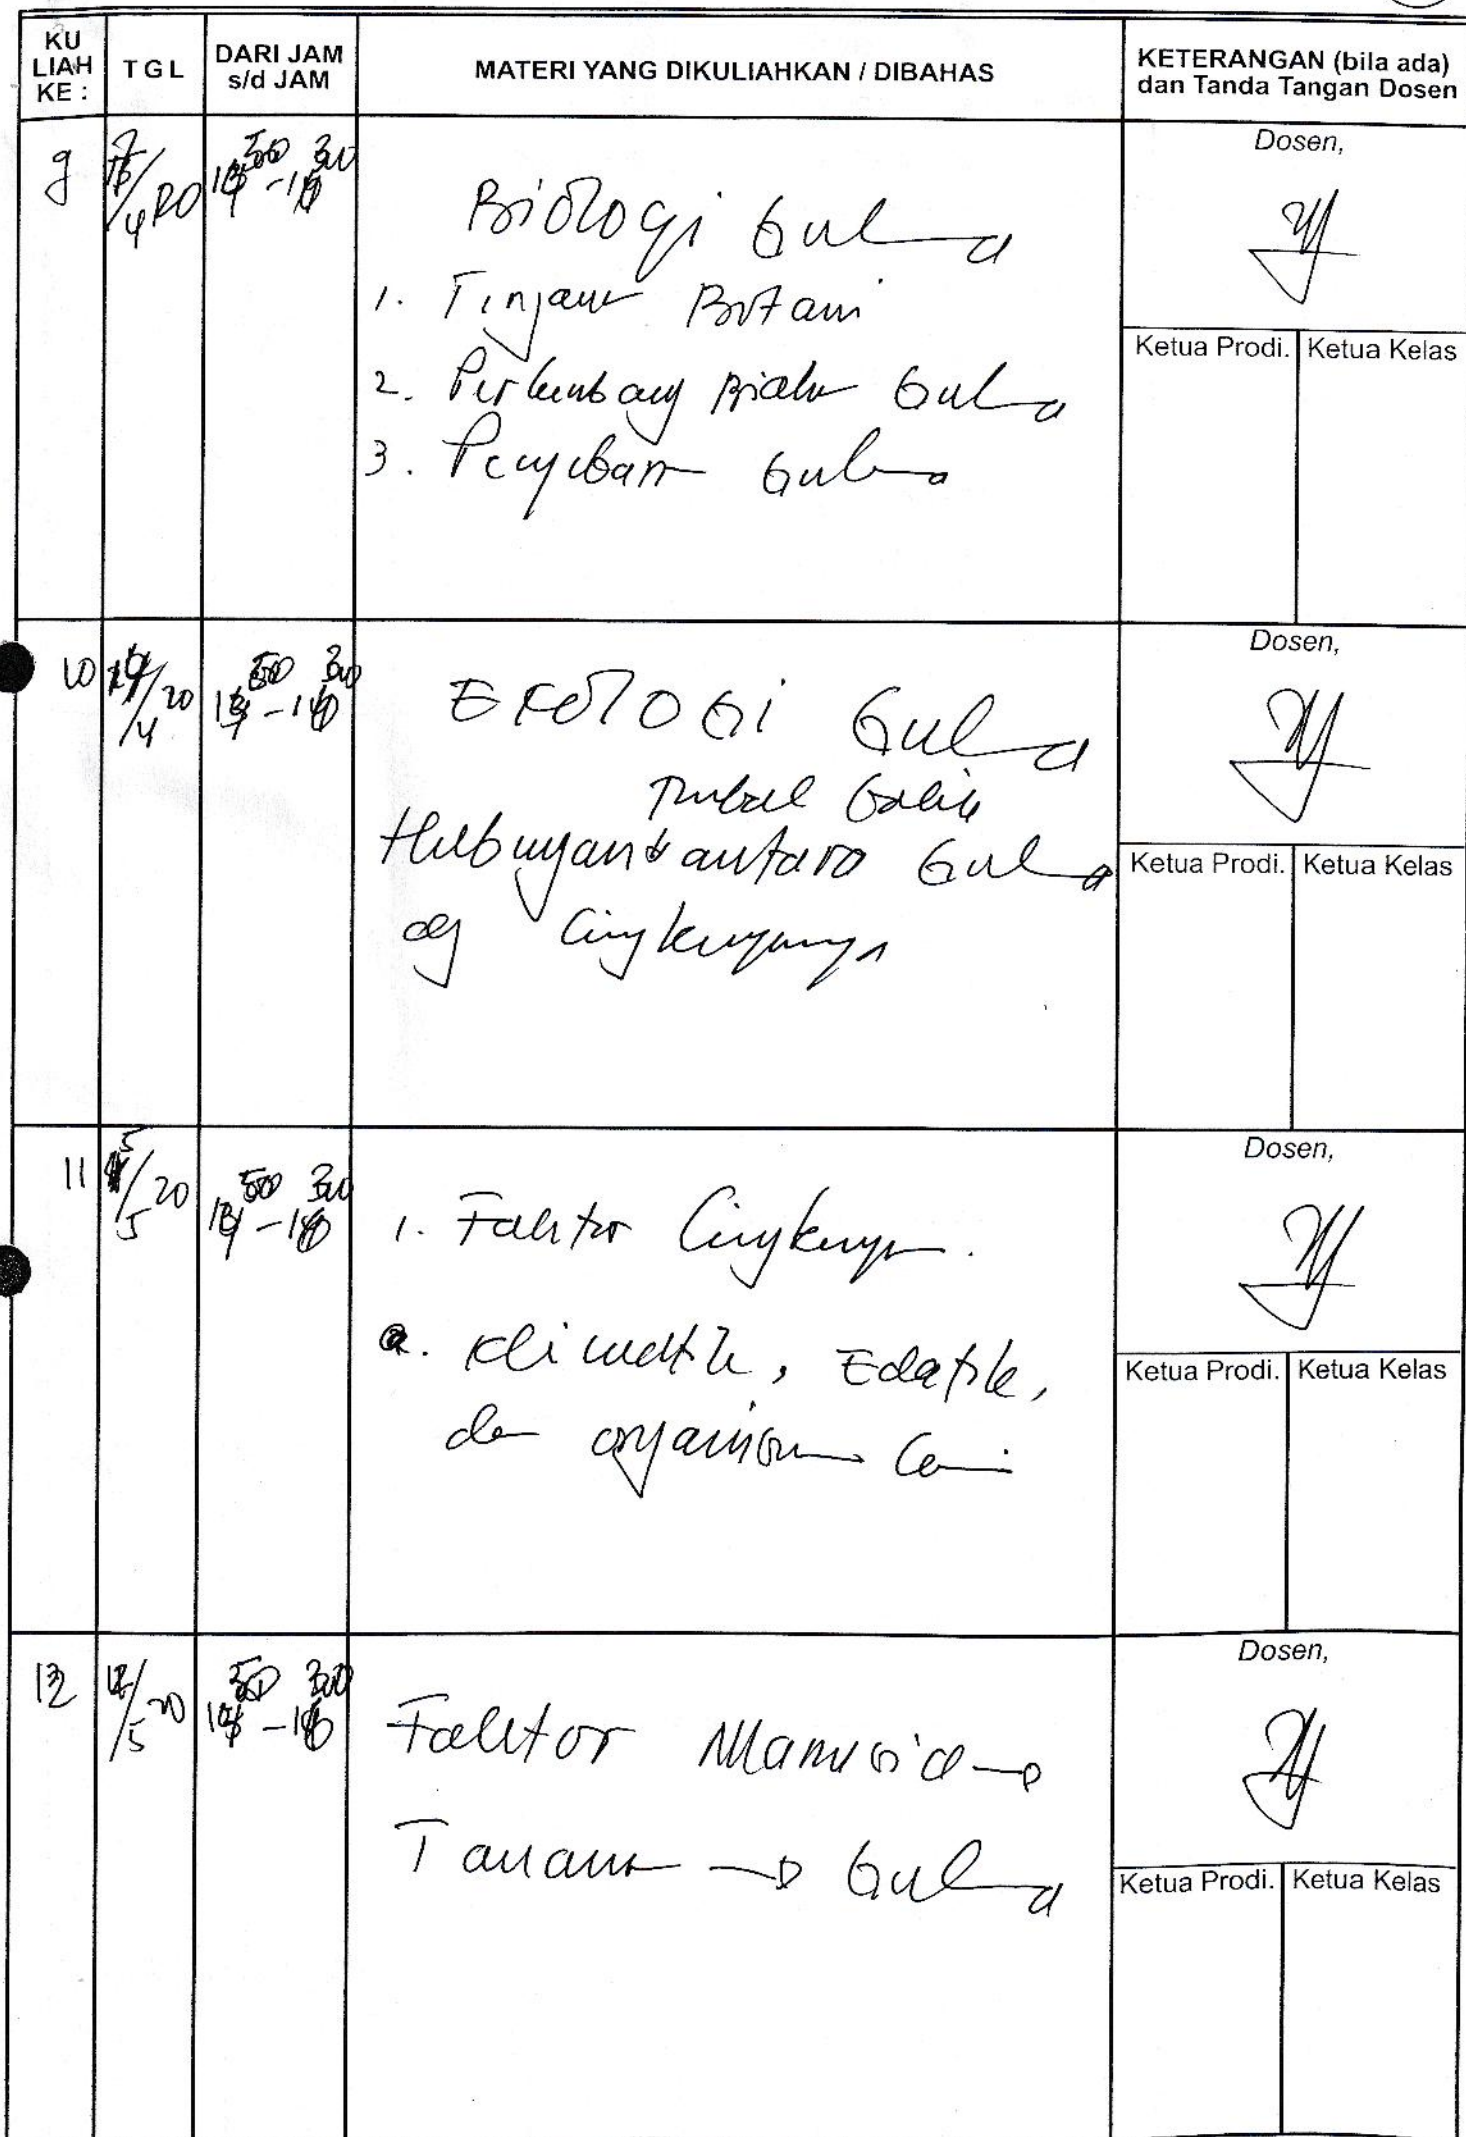 KU LIAH KE :
TGL
DARI JAM s/d JAM
MATERI YANG DIKULIAHKAN / DIBAHAS
KETERANGAN (bila ada) dan Tanda Tangan Dosen
9
Biologi Gulma
1. Tinjauan Botani
2. Perkembang Biakan Gulma
3. Penyebaran Gulma
Dosen,
Ketua Prodi.
Ketua Kelas
10
Ekologi Gulma
Timbal balik
Hubungan antara Gulma
dg Lingkungannya
Dosen,
Ketua Prodi.
Ketua Kelas
11
1. Faktor Lingkungan.
a. Klimatik, Edafik,
dan organisme lain
Dosen,
Ketua Prodi.
Ketua Kelas
12
Faktor Manusia
Tanaman → Gulma
Dosen,
Ketua Prodi.
Ketua Kelas